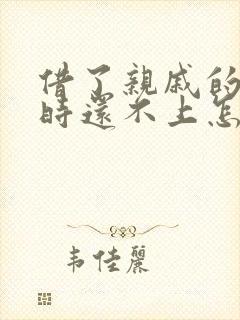 借了親戚的
時還不上怎
韦佳麗